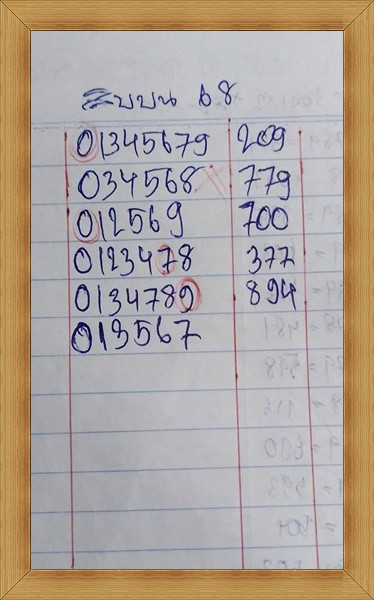 บบน 68
01345679 209
034568 779
012569 700
0123478 377
0134789 894
013567